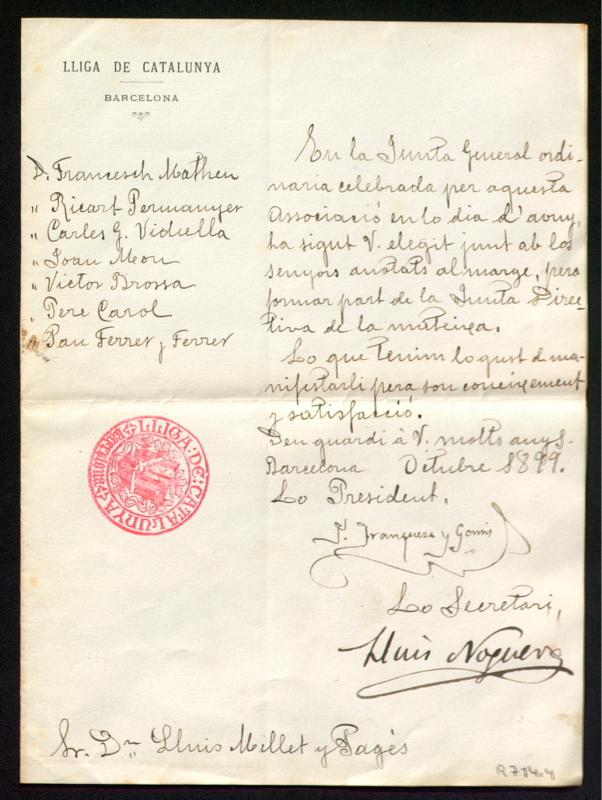 LLIGA DE CATALUNYA
BARCELONA
D. Francesch Matheu
" Ricart Permanyer
" Carles G. Vidiella
" Joan Meou
" Victor Brossa
" Pere Carol
" Pau Ferrer y Ferrer
LLIGA DE CATALUNYA
BARCELONA
En la Junta General ordi-
naria celebrada per aquesta
Associació en lo dia d'avuy,
ha sigut V. elegit junt ab los
senyors anotats al marge, pera
formar part de la Junta Direc-
tiva de la mateixa.
Lo que tenim lo gust de ma-
nifestarli pera son coneixement
y satisfacció.
Deu guardi à V. molts anys.
Barcelona Octubre 1899.
Lo President,
Franquesa y Gomis
Lo Secretari,
Lluis Noguera
Sr. Dn. Lluis Millet y Pagés
R 714.4